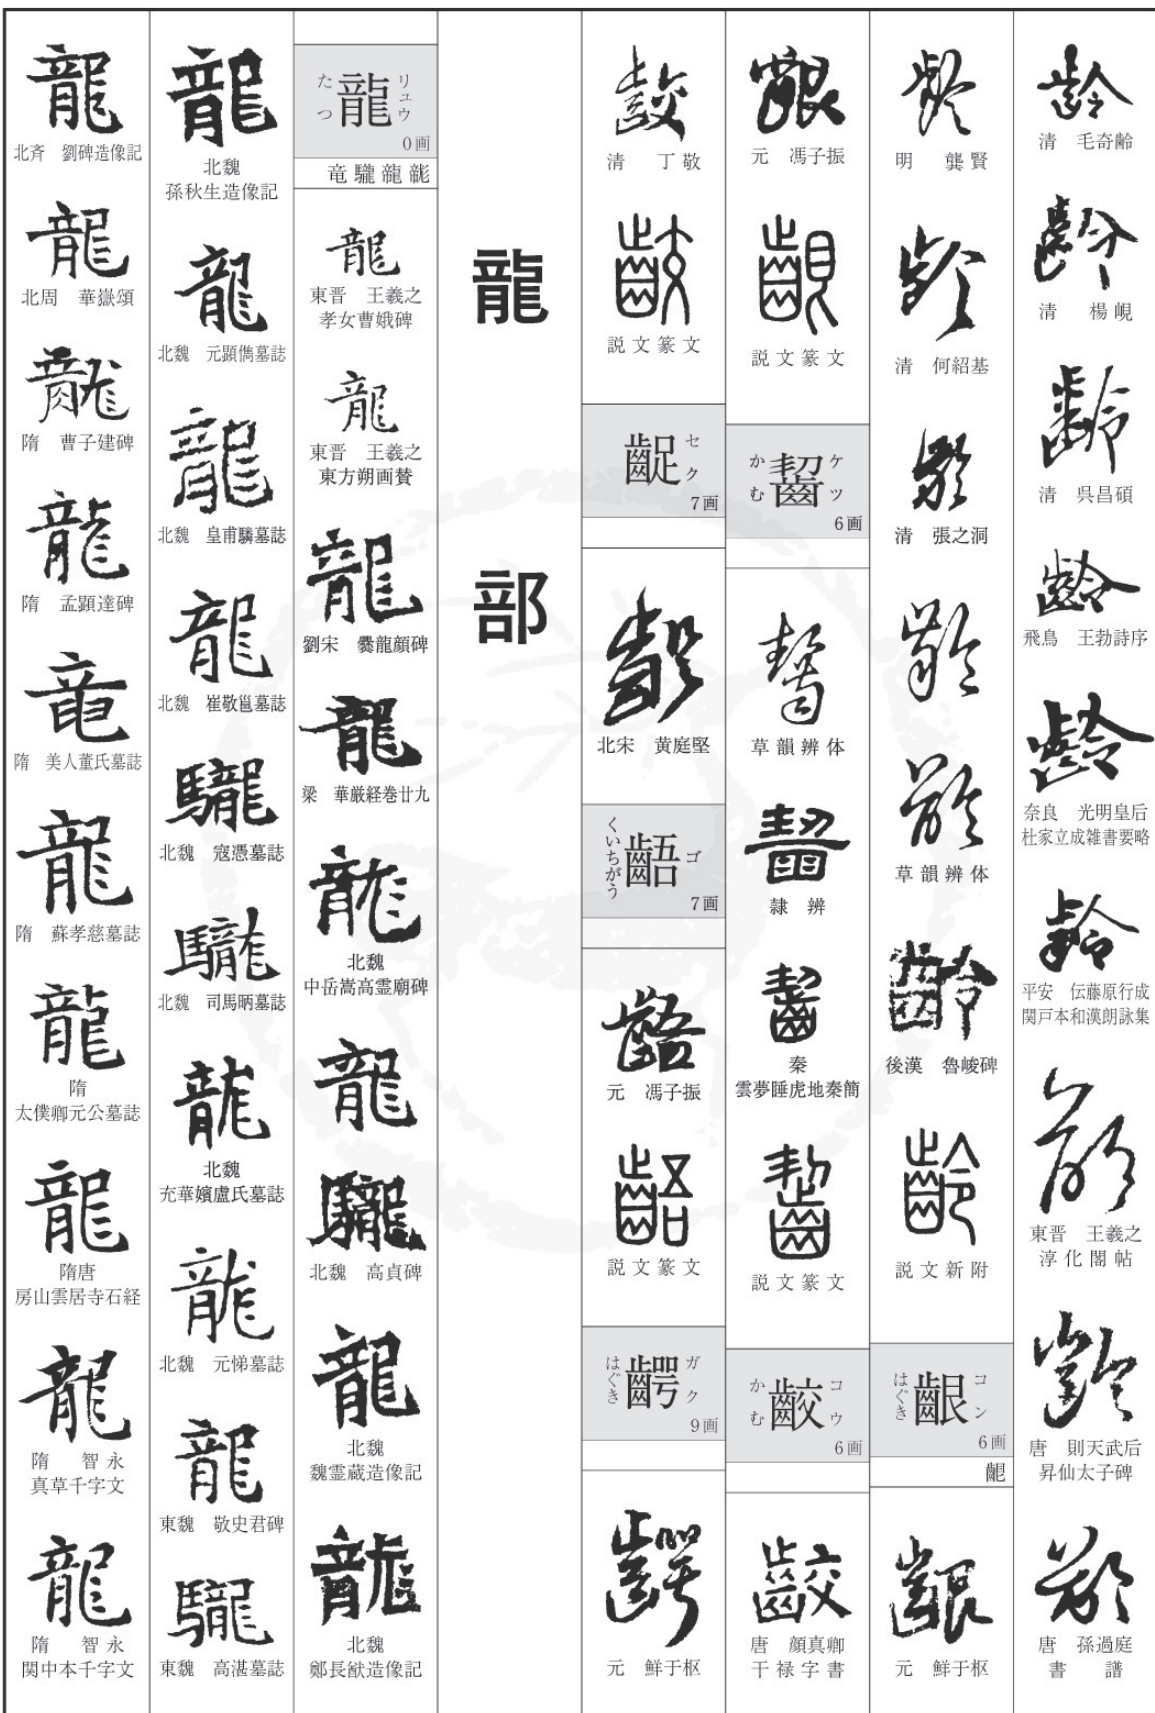 齢
清　毛奇齢
齢
清　楊峴
齢
清　呉昌碩
齢
飛鳥　王勃詩序
齢
奈良　光明皇后
杜家立成雑書要略
齢
平安　伝藤原行成
関戸本和漢朗詠集
齢
東晋　王羲之
淳化閣帖
齢
唐　則天武后
昇仙太子碑
齢
唐　孫過庭
書譜
齢
明　龔賢
齢
清　何紹基
齢
清　張之洞
齢
齢
草韻辨体
齢
後漢　魯峻碑
齢
説文新附
齦
コン
はぐき
6画
齦
元　鮮于枢
齦
元　馮子振
齦
説文篆文
齧
ケツ
かむ
6画
齧
草韻辨体
齧
隷辨
齧
秦
雲夢睡虎地秦簡
齧
説文篆文
齩
コウ
かむ
6画
齩
唐　顔真卿
干禄字書
齩
清　丁敬
齩
説文篆文
齪
セク
7画
齪
北宋　黄庭堅
齬
ゴ
くいちがう
7画
齬
元　馮子振
齬
説文篆文
齶
ガク
はぐき
9画
齶
元　鮮于枢
龍部
龍
リュウ
たつ
0画
竜驡龍龓
龍
東晋　王羲之
孝女曹娥碑
龍
東晋　王羲之
東方朔画賛
龍
劉宋　爨龍顔碑
龍
梁　華厳経巻廿九
龍
北魏
中岳嵩高霊廟碑
龍
龍
北魏　高貞碑
龍
北魏
魏霊蔵造像記
龍
北魏
鄭長猷造像記
龍
北魏
孫秋生造像記
龍
北魏　元顕儁墓誌
龍
北魏　皇甫驎墓誌
龍
北魏　崔敬邕墓誌
龍
北魏　寇憑墓誌
龍
北魏　司馬昞墓誌
龍
北魏
充華嬪盧氏墓誌
龍
北魏　元悌墓誌
龍
東魏　敬史君碑
龍
東魏　高湛墓誌
龍
北斉　劉碑造像記
龍
北周　華嶽頌
龍
隋　曹子建碑
龍
隋　孟顕達碑
竜
隋　美人董氏墓誌
龍
隋　蘇孝慈墓誌
龍
隋
太僕卿元公墓誌
龍
隋唐
房山雲居寺石経
龍
隋　智永
真草千字文
龍
隋　智永
関中本千字文